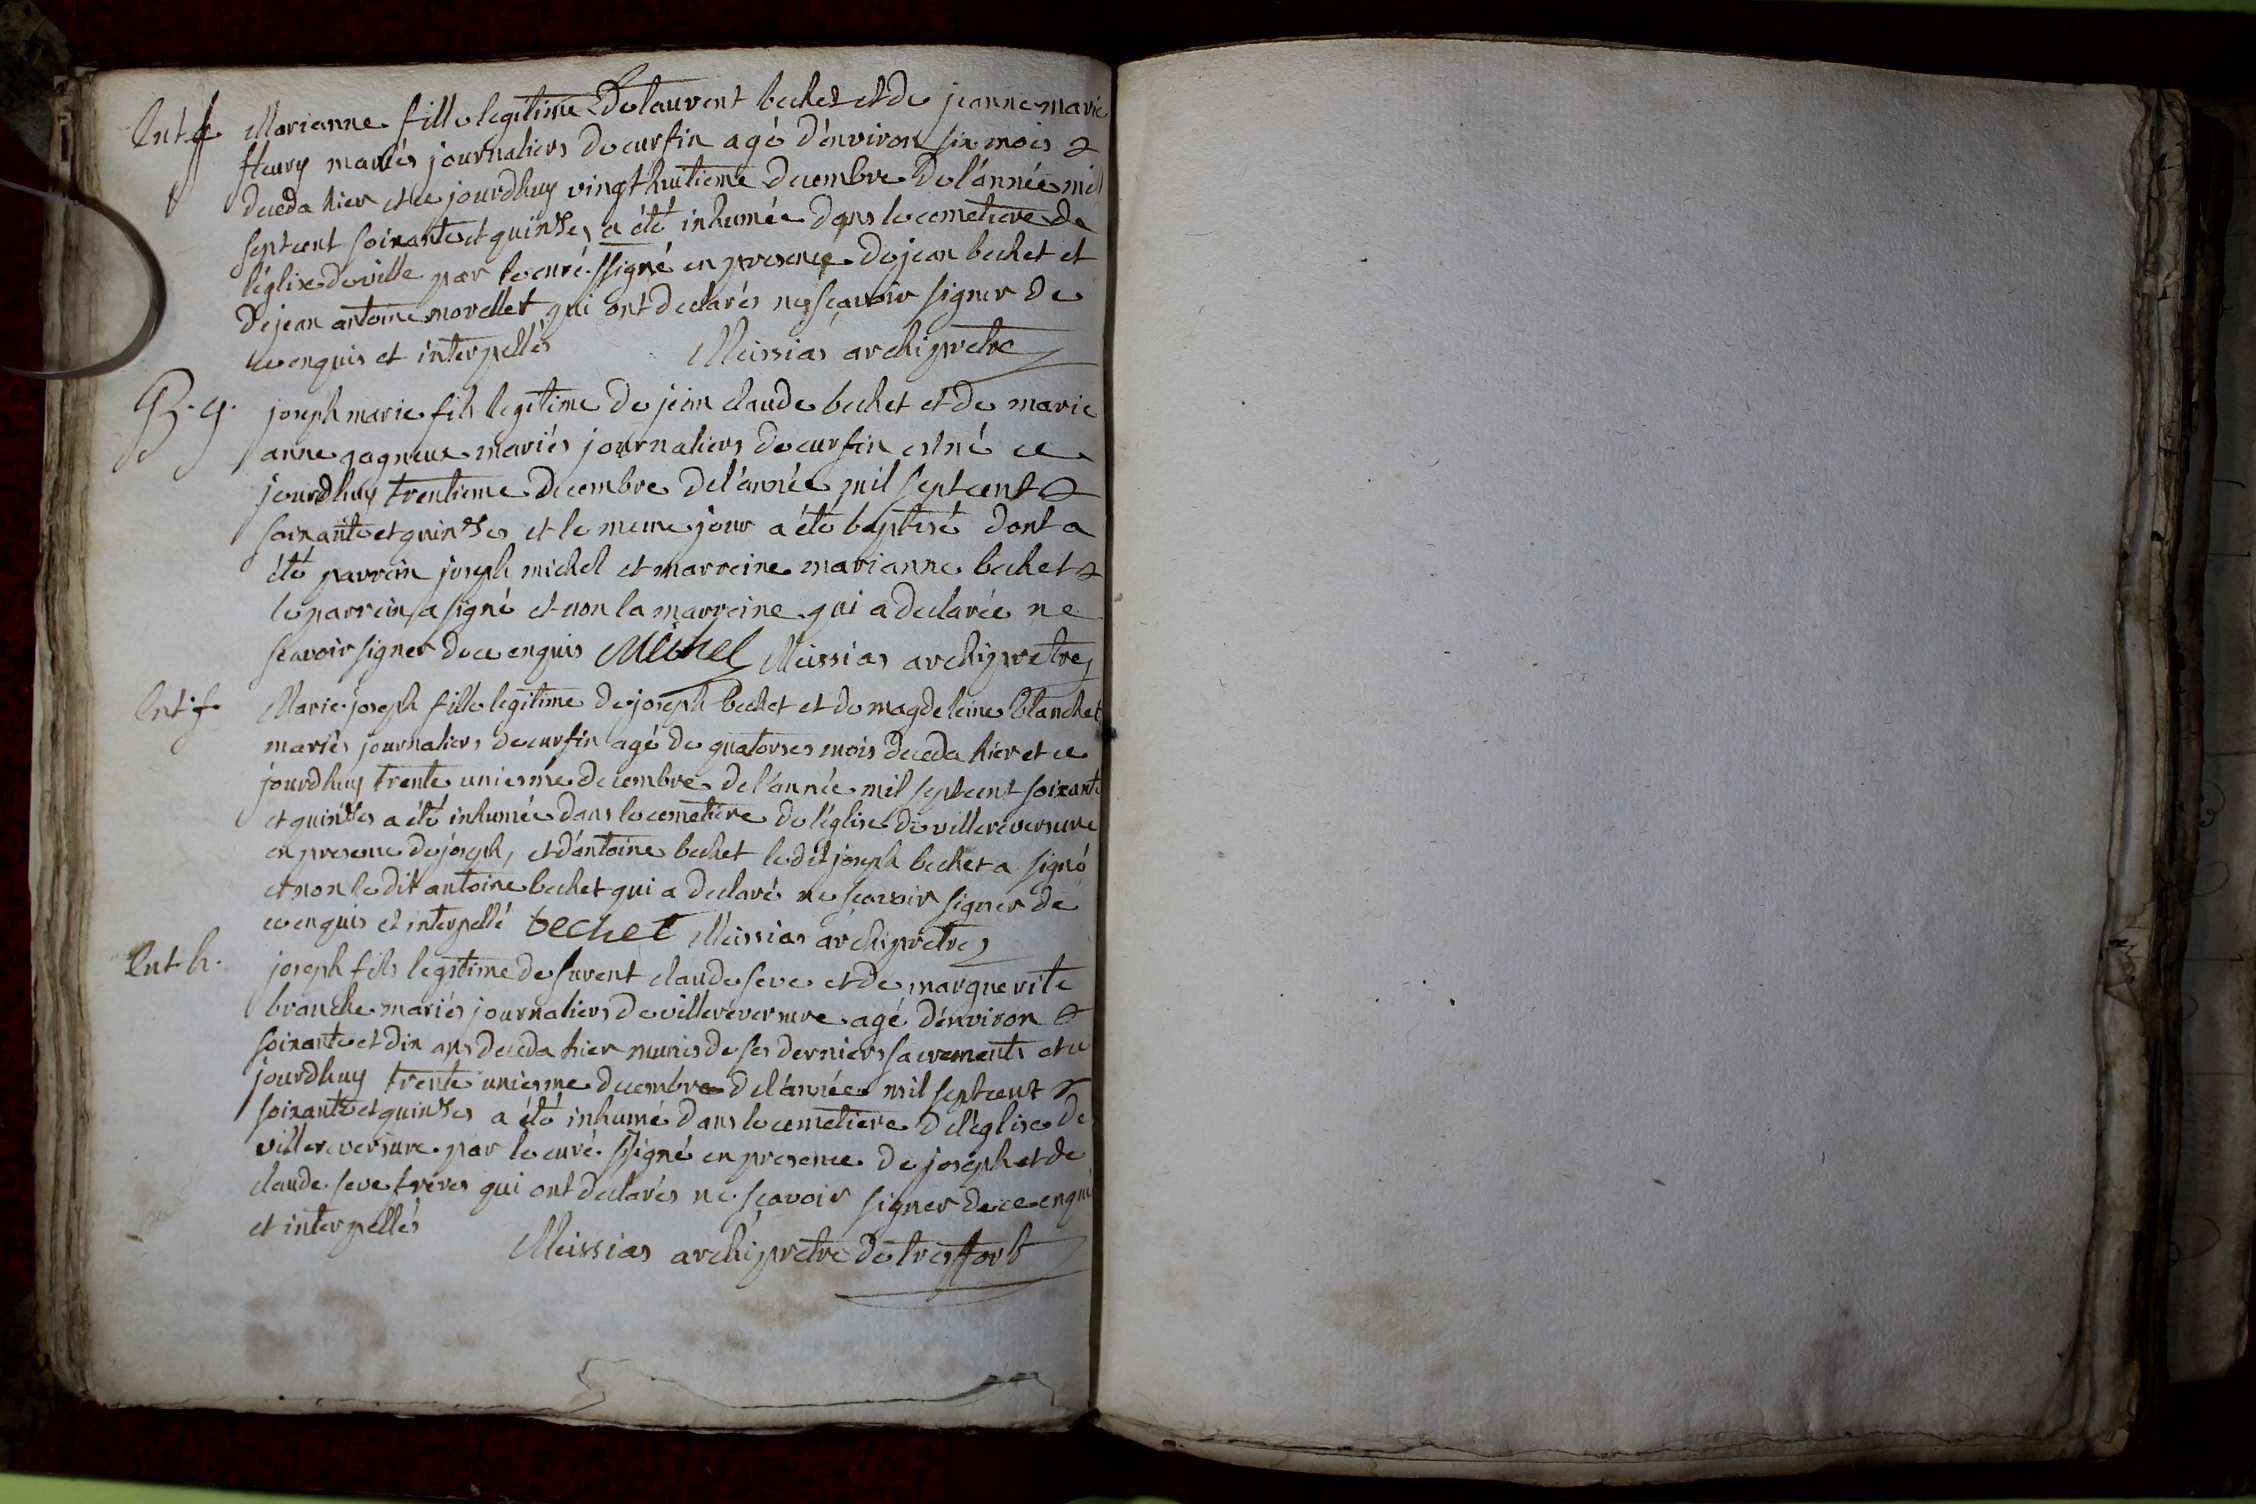 Ent. f. Marianne fille legitime De laurent bechet et de jeanne marie
fleury mariés journaliers de curfin agé d'environ six mois
deceda hier et ce jourdhuy vingt huitieme decembre De l'année mil
sept cent soixante et quinses a été inhumée dans le cemetiere de
l'église de ville par le curé ssigné en presence de jean bechet et
de jean antoine morellet qui ont declarés ne sçavoir signer de
ce enquis et interpellés Meissias archipretre
B. g. joseph marie fils legitime de jean claude bechet et de marie
anne gagneux mariés journaliers de curfin est né ce
jourdhuy trentieme decembre de l'année mil sept cent
soixante et quinses et le meme jour a été baptisé dont a
été parrein joseph michel et marreine marianne bechet
le parrein a signé et non la marreine qui a declarée ne
scavoir signer de ce enquis Michel Meissias archipretre
Ent. f. Marie joseph fille legitime de joseph bechet et de magdeleine blanchet
mariés journaliers de curfin agé de quatorses mois deceda hier et ce
jourdhuy trente uniesme decembre de l'année mil sept cent soixante
et quinses a été inhumée dans le cemetiere de l'église de villereversure
en presence de joseph, et d'antoine bechet le dit joseph bechet a signé
et non le dit antoine bechet qui a declaré ne scavoir signer de
ce enquis et interpellé bechet Meissias archipretre
Ent. h. joseph fils legitime de fuvent claude seve et de marguerite
branche mariés journaliers de villereversure agé d'environ
soixante et dix ans deceda hier munis de ses derniers sacrements et ce
jourdhuy trente uniesme decembre de l'année mil sept cent
soixante et quinses a été inhumé dans le cemetiere de l'église de
villereversure par le curé ssigné en presence de joseph et de
claude seve freres qui ont declarés ne scavoir signer de ce enqui
et interpellés
Meissias archipretre de treffort